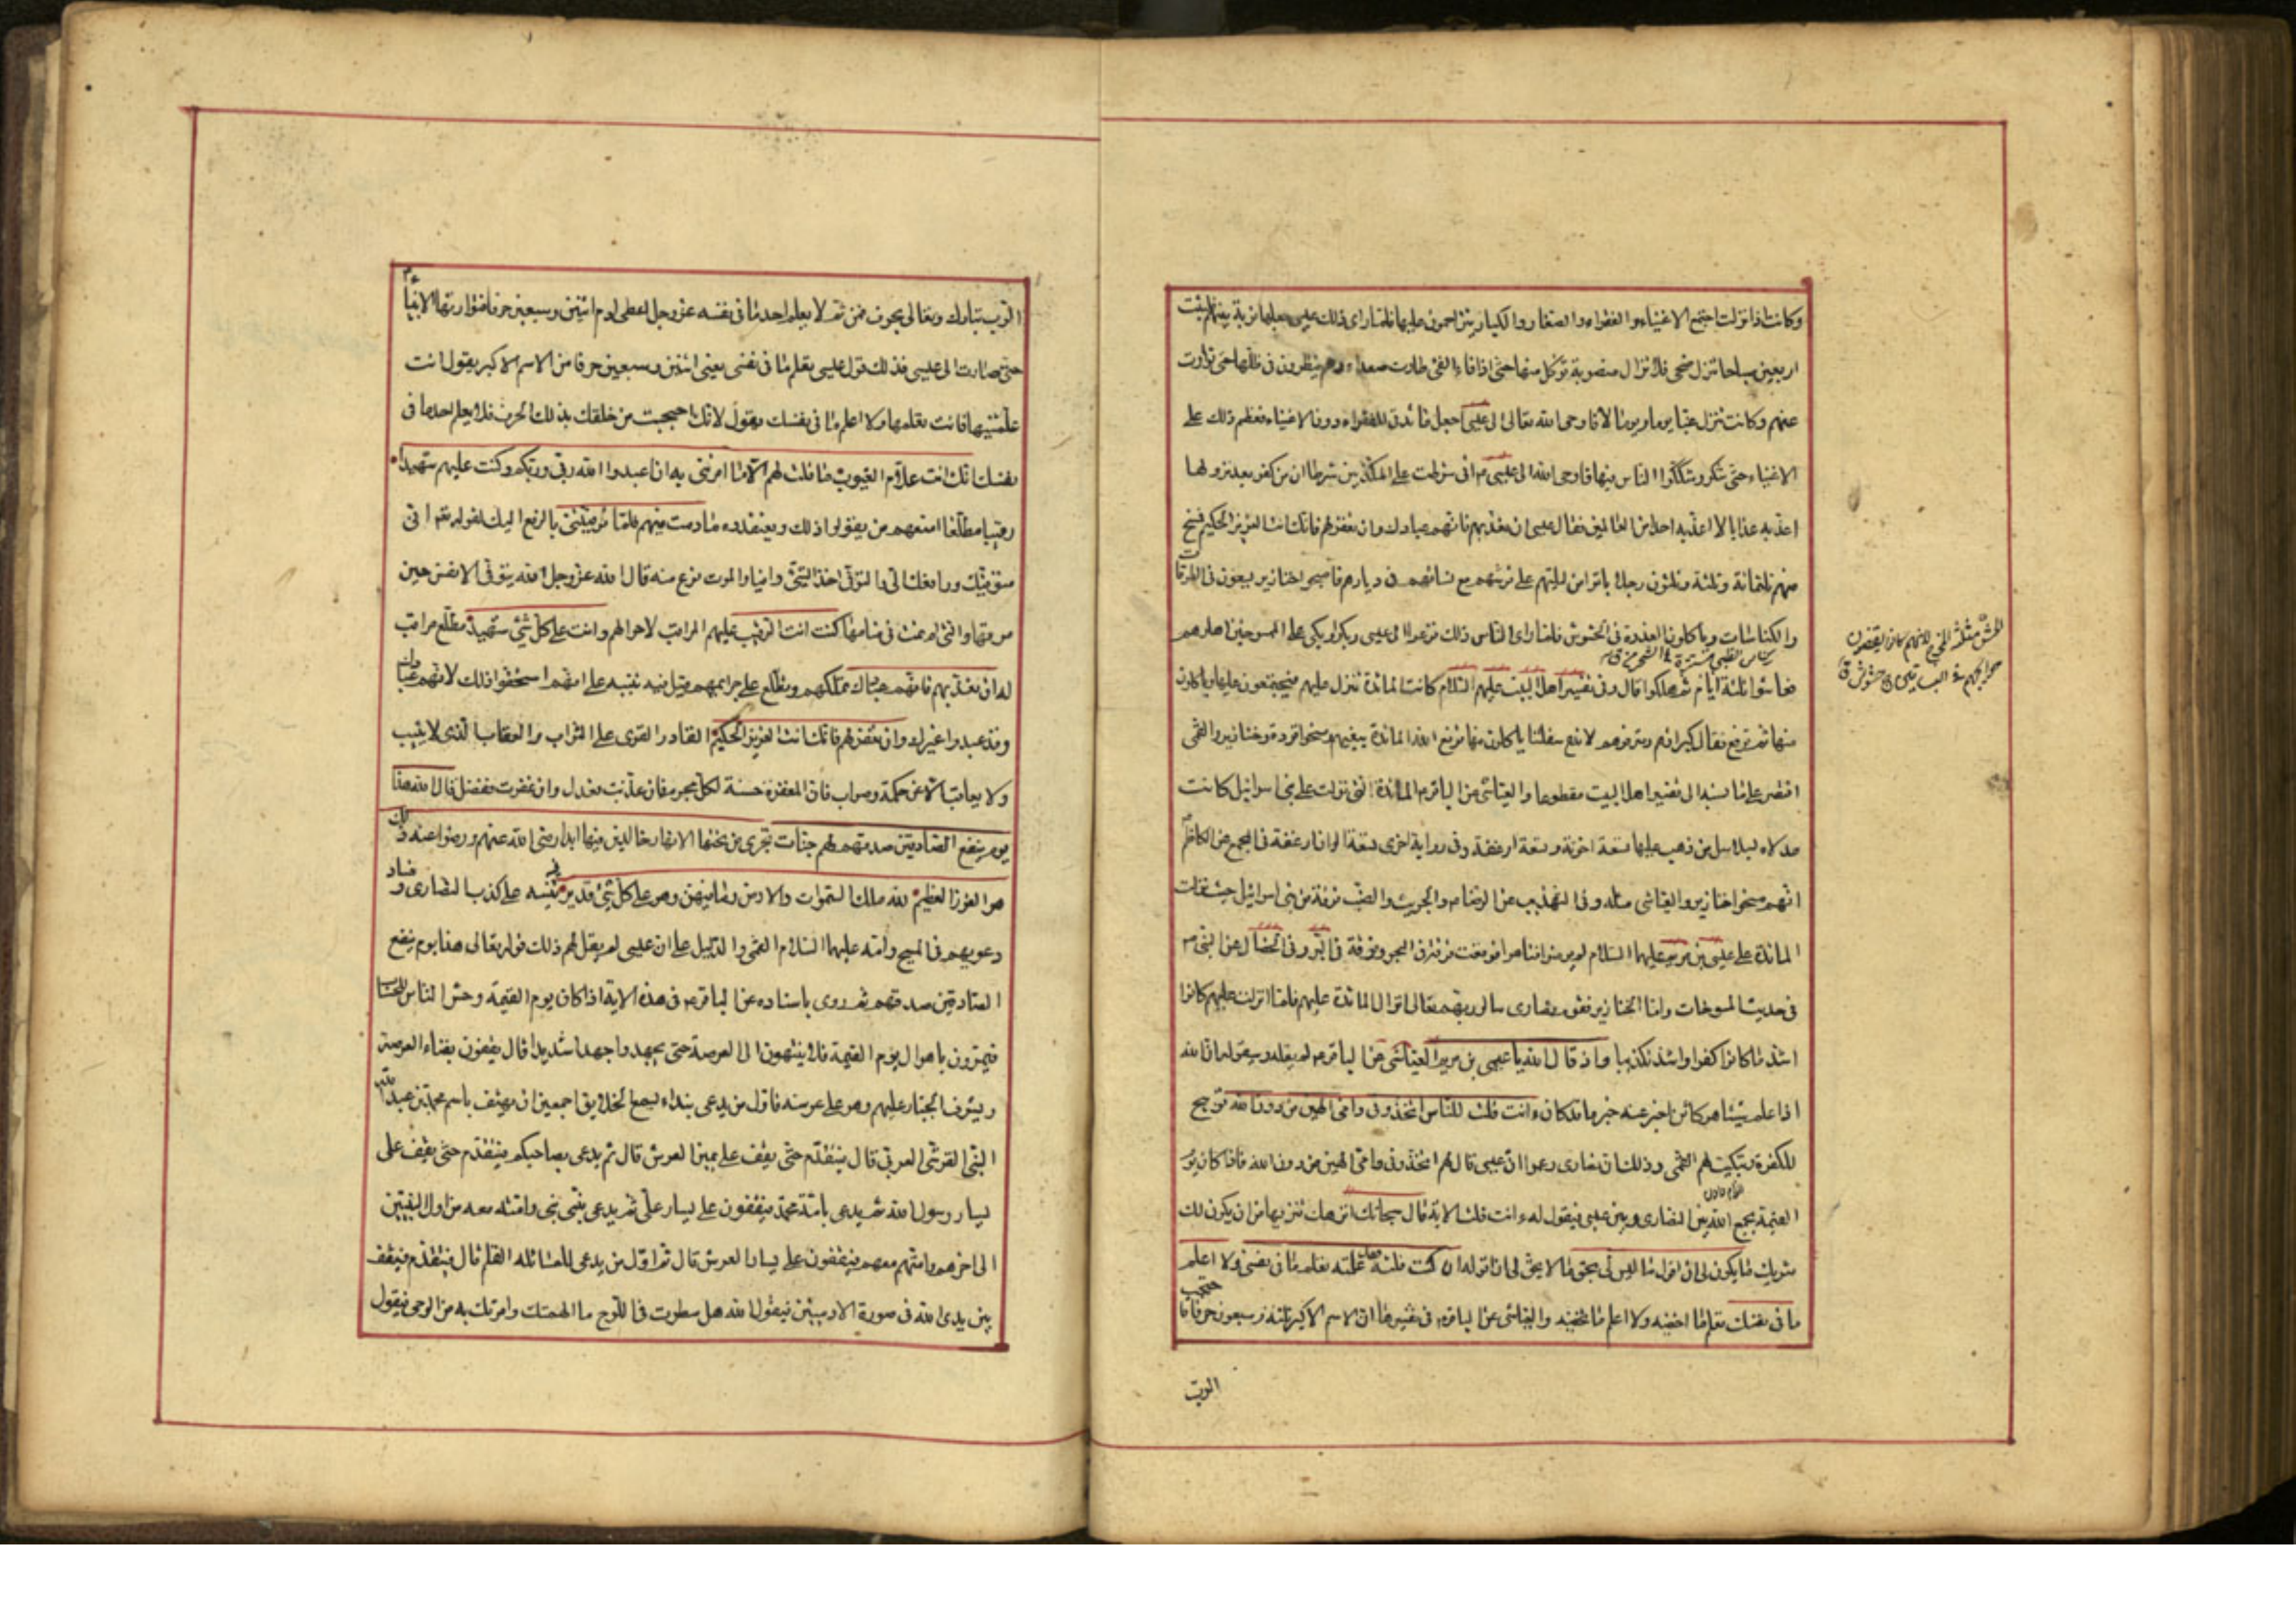 وكانت اذا نزلت اجتمع الاغنياء والفقراء والصغار والكبار يتزاحمون عليها فلما راى ذلك عيسى جعلها نوبة بينهم فلبثت
اربعين صباحا تنزل ضحى فلا تزال منصوبة تؤكل منها حتى اذا فاء الفئ طارت صعداء وهم ينظرون في ظلها حتى توارت
عنهم وكانت تنزل غبا يوما ويوما لا فاوحى الله تعالى الى عيسى اجعل مائدتي للفقراء دون الاغنياء فعظم ذلك على
الاغنياء حتى شكوا وشككوا الناس فيها فاوحى الله الى عيسى م اني شرطت على المكذبين شرطا ان من كفر بعد نزولها
اعذبه عذابا لا اعذبه احدا من العالمين فقال عيسى ان تعذبهم فانهم عبادك وان تغفر لهم فانك انت العزيز الحكيم فمسخ
منهم ثلثمائة وثلثة وثلثون رجلا باتوا من ليلتهم على فرشهم مع نسائهم في ديارهم فاصبحوا خنازير يسعون في الطرقات
والكناسات وياكلون العذرة في الحشوش فلما راى الناس ذلك فزعوا الى عيسى وبكوا وبكى على الممسوخين اهلوهم
فعاشوا ثلثة ايام ثم هلكوا قال وفي تفسير اهل البيت عليهم السلام كانت المائدة تنزل عليهم فيجتمعون عليها وياكلون
منها ثم ترفع فقال كبراؤهم ومترفوهم لا ندع سفلتنا ياكلون منها فرفع الله المائدة ببغيهم ومسخوا قردة وخنازير والقمي
اقتصر على ما نسبه الى تفسير اهل البيت مقطوعا والعياشي عن الباقر م المائدة التي نزلت على بني اسرائيل كانت
مدلاة بسلاسل من ذهب عليها تسعة اخونة وتسعة ارغفة وفي رواية اخرى تسعة الوان ارغفة في المجمع عن الكاظم
انهم مسخوا خنازير والعياشي مثله وفي التهذيب عن الرضا م والجريث والضب فرقة من بني اسرائيل حيث نزلت
المائدة على عيسى بن مريم عليهما السلام لم يومنوا فتاهوا فوقعت فرقة في البحر وفرقة في البر وفي الخصال عن النبي م
في حديث المسوخات واما الخنازير فقوم نصارى سالوا ربهم تعالى انزال المائدة عليهم فلما انزلت عليهم كانوا
اشد ما كانوا كفرا واشد تكذيبا واذ قال الله يا عيسى بن مريم العياشي عن الباقر م لم يقله وسيقوله ان الله
اذا علم شيئا هو كائن اخبر عنه خبر ما قد كان ءانت قلت للناس اتخذوني وامي الهين من دون الله توبيخ
للكفرة وتبكيت لهم القمي وذلك ان نصارى زعموا ان عيسى قال لهم اتخذوني وامي الهين من دون الله فاذا كان يوم
القيمة يجمع الله بين النصارى وبين عيسى فيقول له ءانت قلت الاية قال سبحانك انزهك تنزيها من ان يكون لك
شريك ما يكون لي ان اقول ما ليس لي بحق ما لا يحق لي ان اقوله ان كنت قلته فقد علمته تعلم ما في نفسي ولا اعلم
ما في نفسك تعلم ما اخفيه ولا اعلم ما تخفيه والعياشي عن الباقر م في تفسيرها ان الاسم الاكبر ثلثة وسبعون حرفا فاحتجب
الرب
الرب تبارك وتعالى بحرف فمن ثم لا يعلم احد ما في نفسه عز وجل اعطى ادم اثنين وسبعين حرفا فتوارثها الانبياء
حتى صارت الى عيسى فذلك قول عيسى تعلم ما في نفسي يعني اثنين وسبعين حرفا من الاسم الاكبر يقول انت
علمتنيها فانت تعلمها ولا اعلم ما في نفسك يقول لانك احتجبت من خلقك بذلك الحرف فلا يعلم احد ما في
نفسك انك انت علام الغيوب ما قلت لهم الا ما امرتني به ان اعبدوا الله ربي وربكم وكنت عليهم شهيدا
رقيبا مطلعا امنعهم من يقولوا ذلك ويعتقدوه ما دمت فيهم فلما توفيتني بالرفع اليك لقوله تعالى اني
متوفيك ورافعك الي والتوفي اخذ الشئ وافيا والموت نوع منه قال الله عز وجل الله يتوفى الانفس حين
موتها والتي لم تمت في منامها كنت انت الرقيب عليهم المراقب لاحوالهم وانت على كل شئ شهيد مطلع مراقب
له ان تعذبهم فانهم عبادك تملكهم وتطلع على جرايمهم قيل فيه تنبيه على انهم استحقوا ذلك لانهم عبادك
وقد عبدوا غيرك وان تغفر لهم فانك انت العزيز الحكيم القادر القوى على الثواب والعقاب الذى لا يثيب
ولا يعاقب الا عن حكمة وصواب فان المغفرة حسنة لكل مجرم فان عذبت فعدل وان غفرت ففضل قال الله هذا
يوم ينفع الصادقين صدقهم لهم جنات تجرى من تحتها الانهار خالدين فيها ابدا رضى الله عنهم ورضوا عنه ذلك
هو الفوز العظيم لله ملك السموات والارض وما فيهن وهو على كل شئ قدير تنبيه على كذب النصارى وفساد
دعويهم في المسيح وامه عليهما السلام القمي والدليل على ان عيسى لم يقل لهم ذلك قوله تعالى هذا يوم ينفع
الصادقين صدقهم ثم روى باسناده عن الباقر م في هذه الاية اذا كان يوم القيمة وحشر الناس للحساب
فيمرون باهوال يوم القيمة فلا ينتهون الى العرصة حتى يجهدوا جهدا شديدا قال يقفون بفناء العرصة
ويشرف الجبار عليهم وهو على عرشه فاول من يدعى بنداء يسمع الخلايق اجمعين ان يهتف باسم محمد بن عبد الله
النبي القرشي العربي قال فيتقدم حتى يقف على يمين العرش قال ثم يدعى بصاحبكم فيتقدم حتى يقف على
يسار رسول الله ثم يدعى بامة محمد فيقفون على يسار علي ثم يدعى بنبي نبي وامته معه من اول النبيين
الى اخرهم وامتهم معهم فيقفون على يسار العرش قال ثم اول من يدعى للمسائلة القلم قال فيتقدم فيقف
بين يدى الله في صورة الادميين فيقول الله هل سطرت في اللوح ما الهمتك وامرتك به من الوحى فيقول